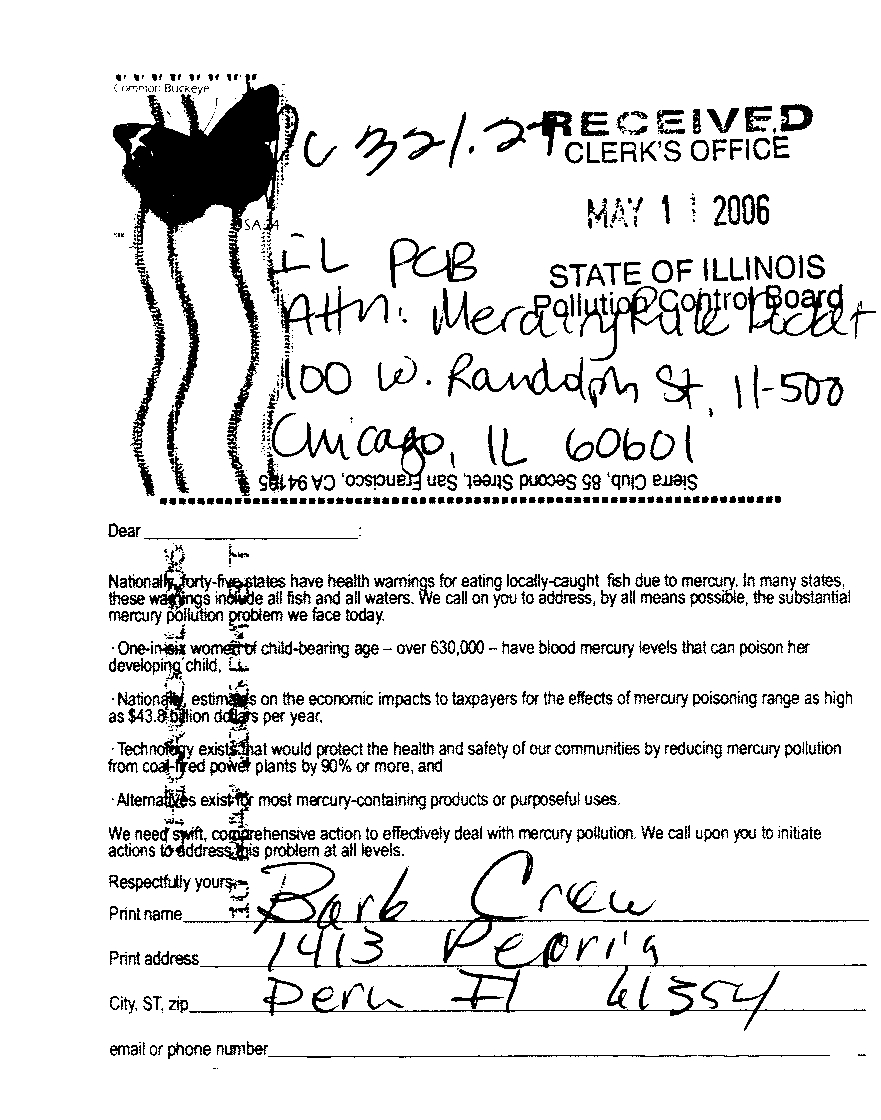 Common Buckeye
USA 24
PC 321.27
RECEIVED
CLERK'S OFFICE
MAY 11 2006
STATE OF ILLINOIS
Pollution Control Board
IL PCB
Attn: Mercury Rule Docket
100 W. Randolph St, 11-500
Chicago, IL 60601
Sierra Club, 85 Second Street, San Francisco, CA 94105
Dear :
Nationally, forty-five states have health warnings for eating locally-caught fish due to mercury. In many states,
these warnings include all fish and all waters. We call on you to address, by all means possible, the substantial
mercury pollution problem we face today.
· One-in-six women of child-bearing age – over 630,000 – have blood mercury levels that can poison her
developing child,
· Nationally, estimates on the economic impacts to taxpayers for the effects of mercury poisoning range as high
as $43.8 billion dollars per year,
· Technology exists that would protect the health and safety of our communities by reducing mercury pollution
from coal-fired power plants by 90% or more, and
· Alternatives exist for most mercury-containing products or purposeful uses.
We need swift, comprehensive action to effectively deal with mercury pollution. We call upon you to initiate
actions to address this problem at all levels.
Respectfully yours,
Print name Barb Crew
Print address 1413 Peoria
City, ST, zip Peru Il 61354
email or phone number